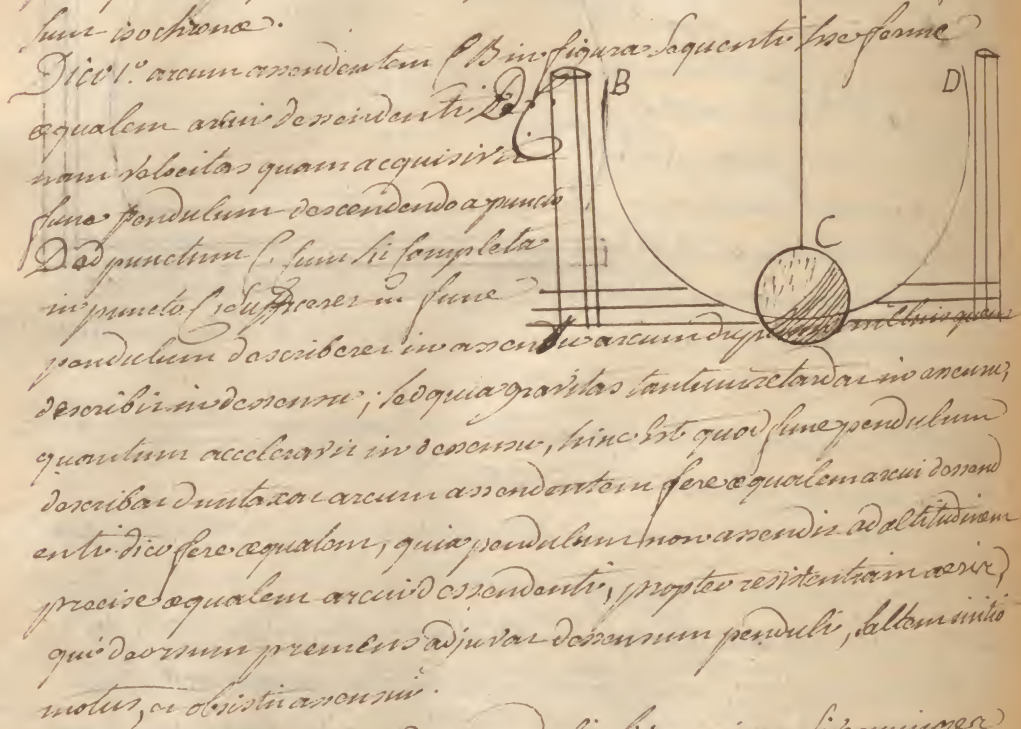 sunt isochronæ.
Dico 1.º arcum assendentem CB in figura sequenti esse ferme
B
D
æqualem arcui dessendenti DC
nam velocitas quam acquisivit
func pendulum descendendo a puncto
D ad punctum C
C
in puncto C func
pendulum describeret in assensu arcum
describit in dessensu; sed quia gravitas tantum retardat in ascensu,
quantum acceleravit in descensu, hinc est quod func pendulum
describat duntaxat arcum assendentem fere æqualem arcui dessend
enti dico fere æqualem, quia pendulum non assendit ad altitudinem
precise æqualem arcui dessendenti, propter resistentiam aeris,
qui deorsum premens adjuvat dessensum penduli, saltem initio
motus, et obsistit assensui.